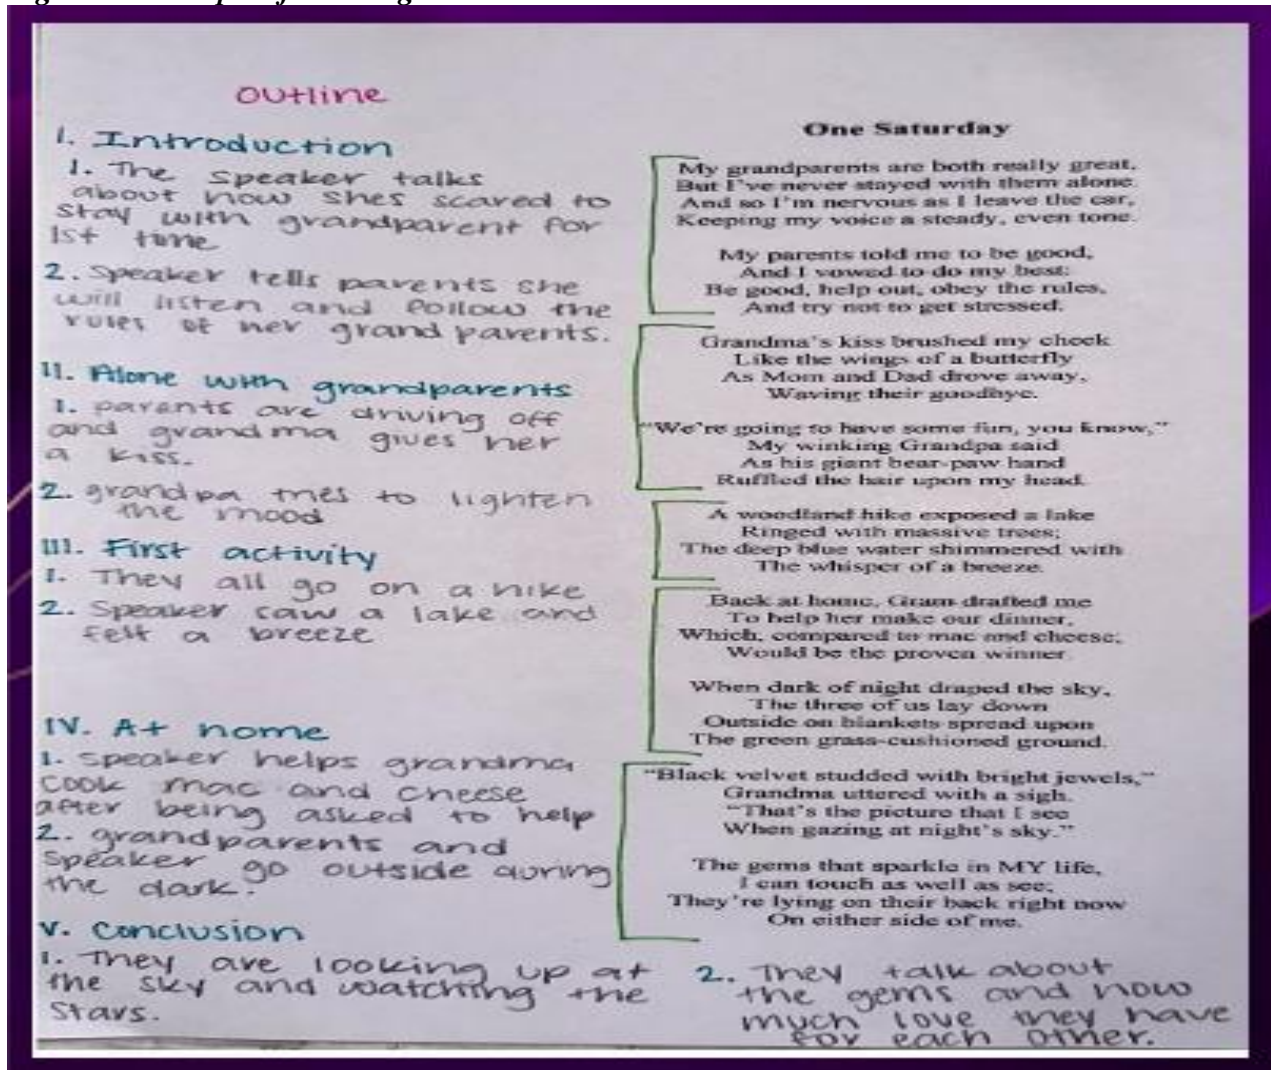 Outline
I. Introduction
1. The speaker talks
about how shes scared to
stay with grandparent for
1st time
2. Speaker tells parents she
will listen and follow the
rules of her grandparents.
II. Alone with grandparents
1. parents are driving off
and grandma gives her
a kiss.
2. grandpa tries to lighten
the mood
III. First activity
1. They all go on a hike
2. Speaker saw a lake and
felt a breeze
IV. At home
1. speaker helps grandma
cook mac and cheese
after being asked to help
2. grandparents and
speaker go outside during
the dark.
V. Conclusion
1. They are looking up at
the sky and watching the
stars.
2. They talk about
the gems and how
much love they have
for each other.
One Saturday
My grandparents are both really great,
But I've never stayed with them alone.
And so I'm nervous as I leave the car,
Keeping my voice a steady, even tone.
My parents told me to be good,
And I vowed to do my best:
Be good, help out, obey the rules,
And try not to get stressed.
Grandma's kiss brushed my cheek
Like the wings of a butterfly
As Mom and Dad drove away,
Waving their goodbye.
"We're going to have some fun, you know,"
My winking Grandpa said
As his giant bear-paw hand
Ruffled the hair upon my head.
A woodland hike exposed a lake
Ringed with massive trees;
The deep blue water shimmered with
The whisper of a breeze.
Back at home, Gram drafted me
To help her make our dinner,
Which, compared to mac and cheese,
Would be the proven winner.
When dark of night draped the sky,
The three of us lay down
Outside on blankets spread upon
The green grass-cushioned ground.
"Black velvet studded with bright jewels,"
Grandma uttered with a sigh.
"That's the picture that I see
When gazing at night's sky."
The gems that sparkle in MY life,
I can touch as well as see;
They're lying on their back right now
On either side of me.